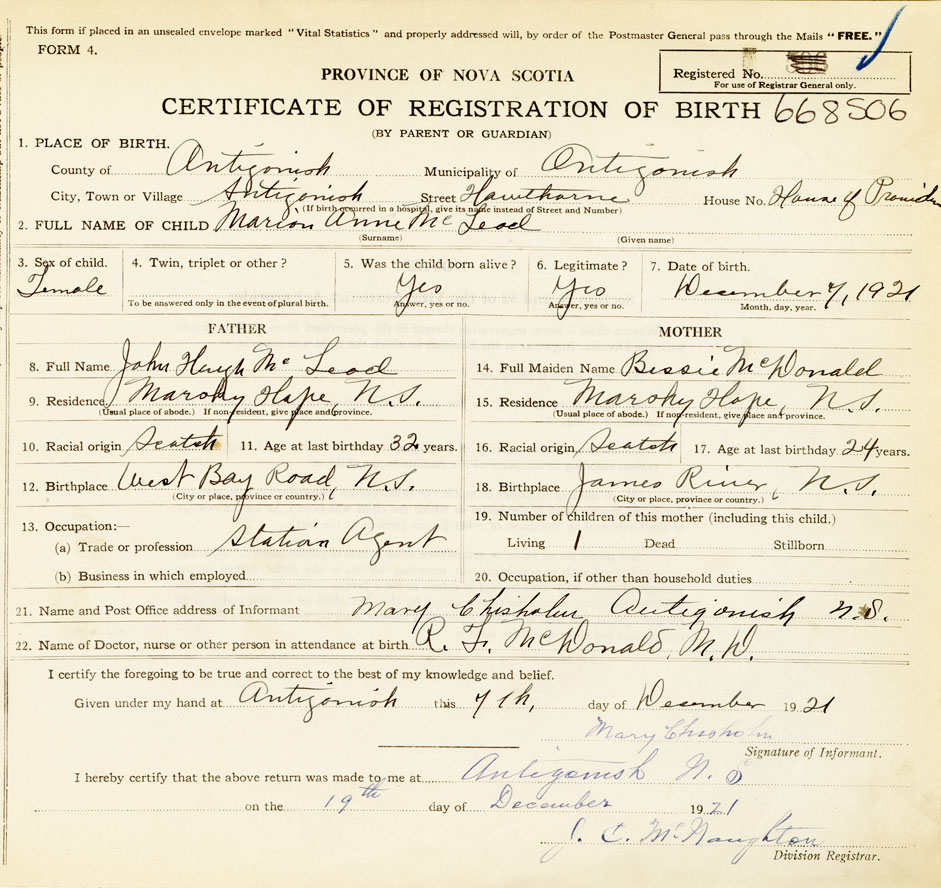 This form if placed in an unsealed envelope marked "Vital Statistics" and properly addressed will, by order of the Postmaster General pass through the Mails "FREE."
FORM 4.
PROVINCE OF NOVA SCOTIA
Registered No.
For use of Registrar General only.
CERTIFICATE OF REGISTRATION OF BIRTH 668506
(BY PARENT OR GUARDIAN)
1. PLACE OF BIRTH.
County of Antigonish Municipality of Antigonish
City, Town or Village Antigonish Street Hawthorne House No. House of Providen
(If birth occurred in a hospital, give its name instead of Street and Number)
2. FULL NAME OF CHILD Marion Anne McLeod
(Surname) (Given name)
3. Sex of child. 4. Twin, triplet or other? 5. Was the child born alive? 6. Legitimate? 7. Date of birth.
Female Yes Yes December 7, 1921
To be answered only in the event of plural birth. Answer, yes or no. Answer, yes or no. Month, day, year.
FATHER MOTHER
8. Full Name John Hugh McLeod 14. Full Maiden Name Bessie McDonald
9. Residence Marshy Hope, N.S. 15. Residence Marshy Hope, N.S.
(Usual place of abode.) If non-resident, give place and province. (Usual place of abode.) If non-resident, give place and province.
10. Racial origin Scotch 11. Age at last birthday 32 years. 16. Racial origin Scotch 17. Age at last birthday 24 years.
12. Birthplace West Bay Road, N.S. 18. Birthplace James River, N.S.
(City or place, province or country.) (City or place, province or country.)
13. Occupation:— 19. Number of children of this mother (including this child.)
(a) Trade or profession Station Agent Living 1 Dead Stillborn
(b) Business in which employed 20. Occupation, if other than household duties
21. Name and Post Office address of Informant Mary Chisholm Antigonish N.S.
22. Name of Doctor, nurse or other person in attendance at birth R. F. McDonald, M.D.
I certify the foregoing to be true and correct to the best of my knowledge and belief.
Given under my hand at Antigonish this 7th, day of December 1921
Mary Chisholm
Signature of Informant.
I hereby certify that the above return was made to me at Antigonish N. S
on the 19th day of December 1921
J. C. McNaughton
Division Registrar.